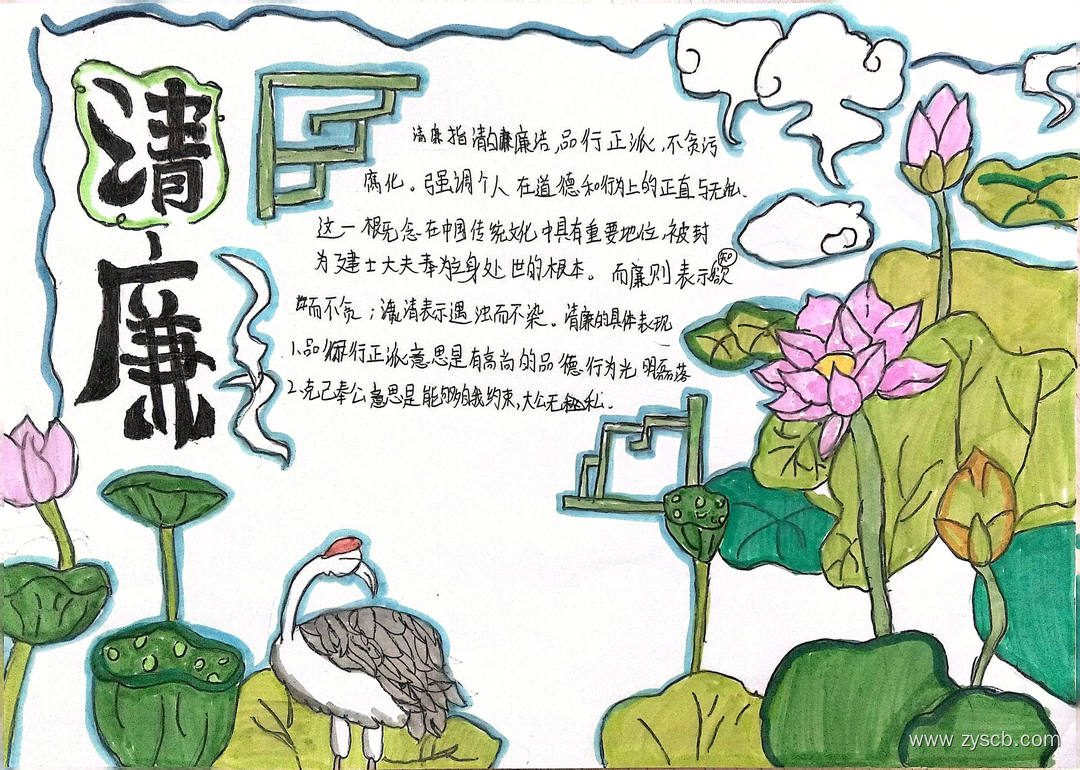 清廉
清廉指清白廉洁,品行正派,不贪污
腐化。强调个人在道德和行为上的正直与无私、
这一概念在中国传统文化中具有重要地位,被封
为建士大夫奉为立身处世的根本。而廉则表示欲
而不贪;清表示遇浊而不染。清廉的具体表现
1.品行正派意思是有高尚的品德行为光明磊落
2.克己奉公意思是能够自我约束,大公无私.
www.zyscb.com